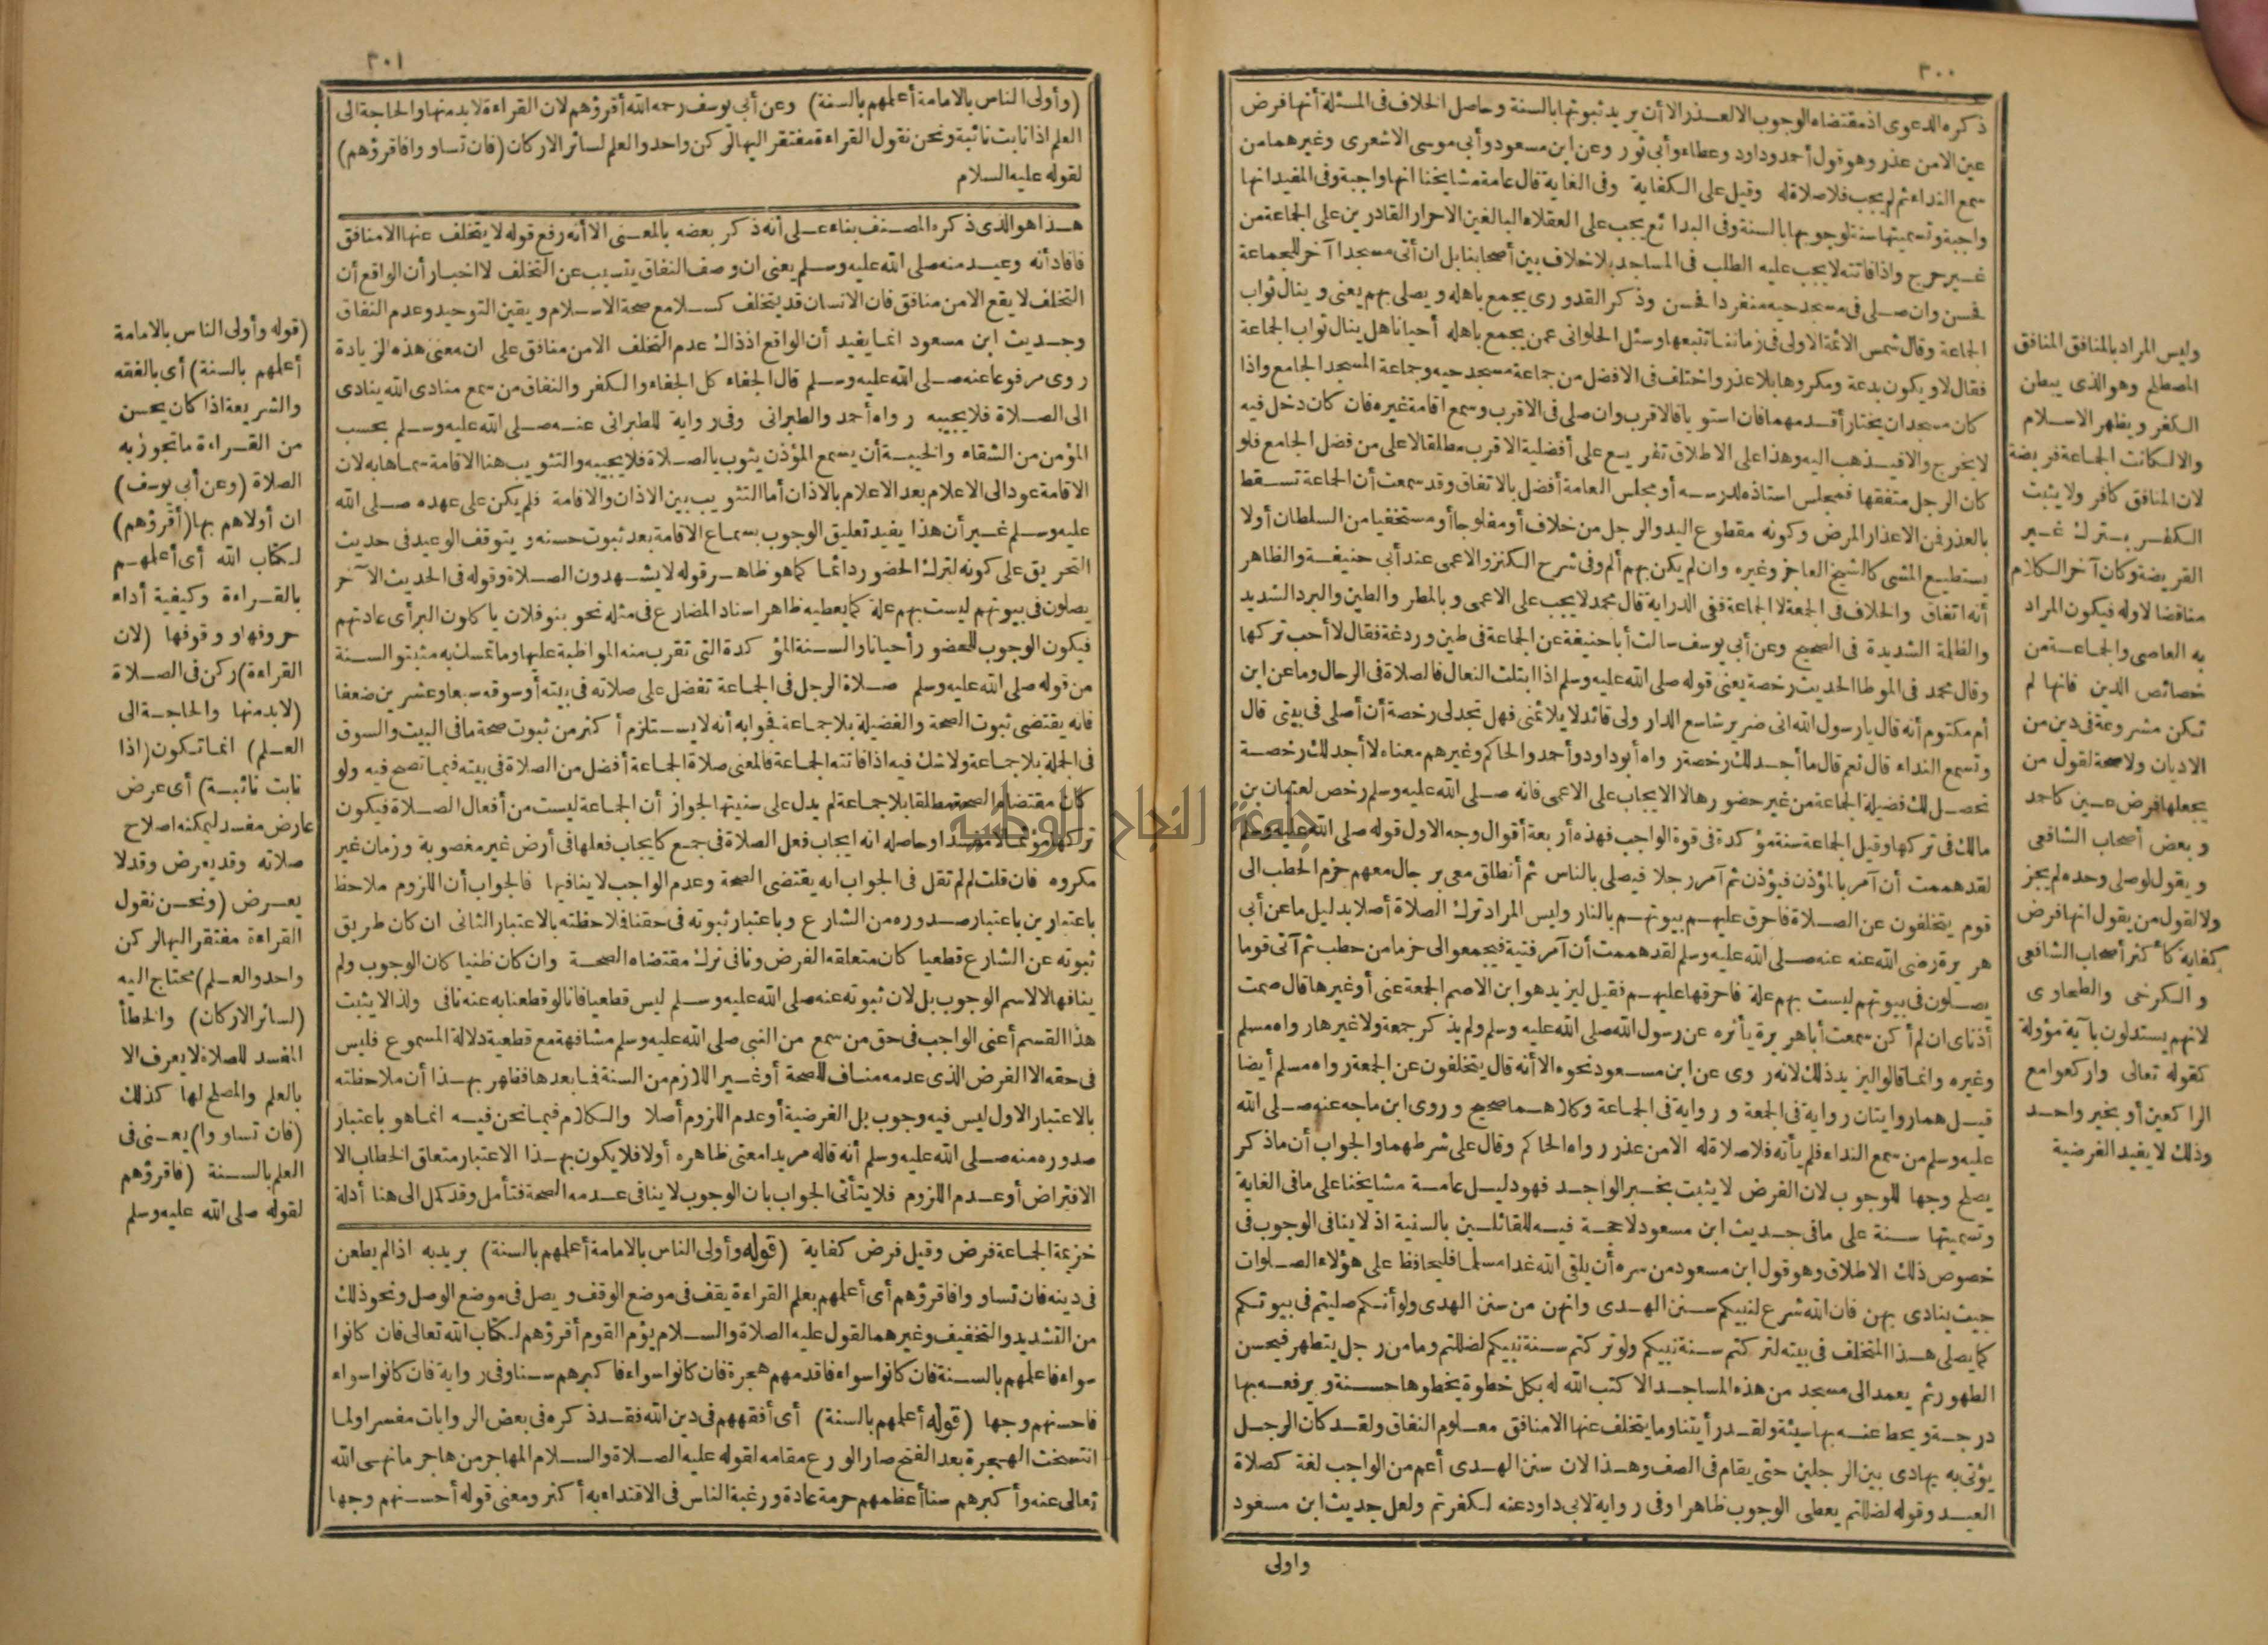 ٣٠٠
ذكره الدعوى اذ مقتضاه الوجوب الا لعذر الا أن يريد ثبوتها بالسنة وحاصل الخلاف فى المسئلة أنها فرض
عين الا من عذر وهو قول أحمد وداود وعطاء وأبى ثور وعن ابن مسعود وأبى موسى الاشعرى وغيرهما من
سمع النداء ثم لم يجب فلا صلاة له وقيل على الكفاية وفى الغاية قال عامة مشايخنا انها واجبة وفى المفيد انها
واجبة وتسميتها سنة لوجوبها بالسنة وفى البدائع يجب على العقلاء البالغين الاحرار القادرين على الجماعة من
غير حرج واذا فاتته لا يجب عليه الطلب فى المساجد بلا خلاف بين أصحابنا بل ان أتى مسجدا آخر للجماعة
فحسن وان صلى فى مسجد حيه منفردا فحسن وذكر القدورى يجمع باهله ويصلى بهم يعنى وينال ثواب
الجماعة وقال شمس الائمة الاولى فى زماننا تتبعها وسئل الحلوانى عمن يجمع باهله أحيانا هل ينال ثواب الجماعة
فقال لا ويكون بدعة ومكروها بلا عذر واختلف فى الافضل من جماعة مسجد حيه وجماعة المسجد الجامع واذا
كان مسجدان يختار أقدمهما فان استويا فالاقرب وان صلى فى الاقرب وسمع اقامة غيره فان كان دخل فيه
لا يخرج والا فيذهب اليه وهذا على الاطلاق تفريع على أفضلية الاقرب مطلقا لا على من فضل الجامع فلو
كان الرجل متفقها فمجلس استاذه لدرسه أو مجلس العامة أفضل بالاتفاق وقد سمعت أن الجماعة تسقط
بالعذر فمن الاعذار المرض وكونه مقطوع اليد والرجل من خلاف أو مفلوجا أو مستخفيا من السلطان أو لا
يستطيع المشى كالشيخ العاجز وغيره وان لم يكن بهم ألم وفى شرح الكنز والاعمى عند أبى حنيفة والظاهر
أنه اتفاق والخلاف فى الجمعة لا الجماعة ففى الدراية قال محمد لا يجب على الاعمى وبالمطر والطين والبرد الشديد
والظلمة الشديدة فى الصحيح وعن أبى يوسف سالت أبا حنيفة عن الجماعة فى طين وردغة فقال لا أحب تركها
وقال محمد فى الموطا الحديث رخصة يعنى قوله صلى الله عليه وسلم اذا ابتلت النعال فالصلاة فى الرحال وما عن ابن
أم مكتوم أنه قال يا رسول الله انى ضرير شاسع الدار ولى قائد لا يلائمنى فهل تجد لى رخصة أن أصلى فى بيتى قال
وتسمع النداء قال نعم قال ما أجد لك رخصة رواه أبو داود وأحمد والحاكم وغيرهم معناه لا أجد لك رخصة
تحصل لك فضيلة الجماعة من غير حضورها لا الايجاب على الاعمى فانه صلى الله عليه وسلم رخص لعتبان بن
مالك فى تركها وقيل الجماعة سنة مؤكدة فى قوة الواجب فهذه أربعة أقوال وجه الاول قوله صلى الله عليه وسلم
لقد هممت أن آمر بالمؤذن فيؤذن ثم آمر رجلا فيصلى بالناس ثم أنطلق معى برجال معهم حزم الحطب الى
قوم يتخلفون عن الصلاة فاحرق عليهم بيوتهم بالنار وليس المراد ترك الصلاة أصلا بدليل ما عن أبى
هريرة رضى الله عنه عنه صلى الله عليه وسلم لقد هممت أن آمر فتية فيجمعوا الى حزما من حطب ثم آتى قوما
يصلون فى بيوتهم ليست بهم علة فاحرقها عليهم فقيل ليزيد هو ابن الاصم الجمعة عنى أو غيرها قال صمت
أذناى ان لم أكن سمعت أبا هريرة يأثره عن رسول الله صلى الله عليه وسلم ولم يذكر جمعة ولا غيرها رواه مسلم
وغيره وانما قالوا ليزيد ذلك لانه روى عن ابن مسعود نحوه الا أنه قال يتخلفون عن الجمعة رواه مسلم أيضا
قيل هما روايتان رواية فى الجمعة ورواية فى الجماعة وكلاهما صحيح وروى ابن ماجه عنه صلى الله
عليه وسلم من سمع النداء فلم يأته فلا صلاة له الا من عذر رواه الحاكم وقال على شرطهما والجواب أن ما ذكر
يصلح وجها للوجوب لان الفرض لا يثبت بخبر الواحد فهو دليل عامة مشايخنا على ما فى الغاية
وتسميتها سنة على ما فى حديث ابن مسعود لا حجة فيه للقائلين بالسنية اذ لا ينافى الوجوب فى
خصوص ذلك الاطلاق وهو قول ابن مسعود من سره أن يلقى الله غدا مسلما فليحافظ على هؤلاء الصلوات
حيث ينادى بهن فان الله شرع لنبيكم سنن الهدى وانهن من سنن الهدى ولو أنكم صليتم فى بيوتكم
كما يصلى هذا المتخلف فى بيته لتركتم سنة نبيكم ولو تركتم سنة نبيكم لضللتم وما من رجل يتطهر فيحسن
الطهور ثم يعمد الى مسجد من هذه المساجد الا كتب الله له بكل خطوة يخطوها حسنة ويرفعه بها
درجة ويحط عنه بها سيئة ولقد رأيتنا وما يتخلف عنها الا منافق معلوم النفاق ولقد كان الرجل
يؤتى به يهادى بين الرجلين حتى يقام فى الصف وهذا لان سنن الهدى أعم من الواجب لغة كصلاة
العيد وقوله لضللتم يعطى الوجوب ظاهرا وفى رواية لابى داود عنه لكفرتم ولعل حديث ابن مسعود
واولى
وليس المراد بالمنافق المنافق
المصطلح وهو الذى يبطن
الكفر ويظهر الاسلام
والا لكانت الجماعة فريضة
لان المنافق كافر ولا يثبت
الكفر بترك غير
الفريضة وكان آخر الكلام
مناقضا لاوله فيكون المراد
به العاصى والجماعة من
خصائص الدين فانها لم
تكن مشروعة فى دين من
الاديان ولا صحة لقول من
يجعلها فرض عين كاحمد
وبعض أصحاب الشافعى
ويقول لو صلى وحده لم يجز
ولا لقول من يقول انها فرض
كفاية كأكثر أصحاب الشافعى
والكرخى والطحاوى
لانهم يستدلون بآية مؤولة
كقوله تعالى واركعوا مع
الراكعين أو بخبر واحد
وذلك لا يفيد الفرضية
٣٠١
(وأولى الناس بالامامة أعلمهم بالسنة) وعن أبى يوسف رحمه الله أقرؤهم لان القراءة لا بد منها والحاجة الى
العلم اذا نابت نائبة ونحن نقول القراءة مفتقر اليها لركن واحد والعلم لسائر الاركان (فان تساووا فاقرؤهم)
لقوله عليه السلام
هذا هو الذى ذكره المصنف بناء على أنه ذكر بعضه بالمعنى الا أنه رفع قوله لا يتخلف عنها الا منافق
فافاد أنه وعيد منه صلى الله عليه وسلم يعنى ان وصف النفاق يتسبب عن التخلف لا اخبار أن الواقع أن
التخلف لا يقع الا من منافق فان الانسان قد يتخلف كسلا مع صحة الاسلام ويقين التوحيد وعدم النفاق
وحديث ابن مسعود انما يفيد أن الواقع اذ ذاك عدم التخلف الا من منافق على ان معنى هذه الزيادة
روى مرفوعا عنه صلى الله عليه وسلم قال الجفاء كل الجفاء والكفر والنفاق من سمع منادى الله ينادى
الى الصلاة فلا يجيبه رواه أحمد والطبرانى وفى رواية للطبرانى عنه صلى الله عليه وسلم بحسب
المؤمن من الشقاء والخيبة أن يسمع المؤذن يثوب بالصلاة فلا يجيبه والتثويب هنا الاقامة سماها به لان
الاقامة عود الى الاعلام بعد الاعلام بالاذان أما التثويب بين الاذان والاقامة فلم يكن على عهده صلى الله
عليه وسلم غير أن هذا يفيد تعليق الوجوب بسماع الاقامة بعد ثبوت حسنه ويتوقف الوعيد فى حديث
التحريق على كونه لترك الحضور دائما كما هو ظاهر قوله لا يشهدون الصلاة وقوله فى الحديث الآخر
يصلون فى بيوتهم ليست بهم علة كما يعطيه ظاهر اسناد المضارع فى مثله نحو بنو فلان ياكلون البر أى عادتهم
فيكون الوجوب للحضور أحيانا والسنة المؤكدة التى تقرب منه المواظبة عليها وما تمسك به مثبتو السنة
من قوله صلى الله عليه وسلم صلاة الرجل فى الجماعة تفضل على صلاته فى بيته أو سوقه سبعا وعشرين ضعفا
فانه يقتضى ثبوت الصحة والفضيلة بلا جماعة فجوابه أنه لا يستلزم أكثر من ثبوت صحة ما فى البيت والسوق
فى الجملة بلا جماعة ولا شك فيه اذا فاتته الجماعة فالمعنى صلاة الجماعة أفضل من الصلاة فى بيته فيما تصح فيه ولو
كان مقتضاه الصحة مطلقا بلا جماعة لم يدل على سنيتها لجواز أن الجماعة ليست من أفعال الصلاة فيكون
تركها مؤثما لا مفسدا وحاصله انه ايجاب فعل الصلاة فى جمع كايجاب فعلها فى أرض غير مغصوبة وزمان غير
مكروه فان قلت لم لم تقل فى الجواب انه يقتضى الصحة وعدم الواجب لا ينافيها فالجواب أن اللزوم ملاحظ
باعتبارين باعتبار صدوره من الشارع وباعتبار ثبوته فى حقنا فملاحظته بالاعتبار الثانى ان كان طريق
ثبوته عن الشارع قطعيا كان متعلقه الفرض ونافى تركه مقتضاه الصحة وان كان ظنيا كان الوجوب ولم
ينافها لا لاسم الوجوب بل لان ثبوته عنه صلى الله عليه وسلم ليس قطعيا فانا لو قطعنا به عنه نافى ولذا لا يثبت
هذا القسم أعنى الواجب فى حق من سمع من النبى صلى الله عليه وسلم مشافهة مع قطعية دلالة المسموع فليس
فى حقه الا الفرض الذى عدمه مناف للصحة أو غير اللازم من السنة فما بعدها فظهر بهذا أن ملاحظته
بالاعتبار الاول ليس فيه وجوب بل الفرضية أو عدم اللزوم أصلا والكلام فيما نحن فيه انما هو باعتبار
صدوره منه صلى الله عليه وسلم أنه قاله مريدا معنى ظاهره أو لا فلا يكون بهذا الاعتبار متعلق الخطاب الا
الافتراض أو عدم اللزوم فلا يتأتى الجواب بان الوجوب لا ينافى عدمه الصحة فتأمل وقد كمل الى هنا أدلة
خزيمة الجماعة فرض وقيل فرض كفاية (قوله وأولى الناس بالامامة أعلمهم بالسنة) يريد به اذا لم يطعن
فى دينه فان تساووا فاقرؤهم أى أعلمهم بعلم القراءة يقف فى موضع الوقف ويصل فى موضع الوصل ونحو ذلك
من التشديد والتخفيف وغيرهما لقول عليه الصلاة والسلام يؤم القوم أقرؤهم لكتاب الله تعالى فان كانوا
سواء فاعلمهم بالسنة فان كانوا سواء فاقدمهم هجرة فان كانوا سواء فاكبرهم سنا وفى رواية فان كانوا سواء
فاحسنهم وجها (قوله أعلمهم بالسنة) أى أفقههم فى دين الله فقد ذكره فى بعض الروايات مفسرا ولما
انتسخت الهجرة بعد الفتح صار الورع مقامه لقوله عليه الصلاة والسلام المهاجر من هاجر ما نهى الله
تعالى عنه وأكبرهم سنا أعظمهم حرمة عادة ورغبة الناس فى الاقتداء به أكثر ومعنى قوله أحسنهم وجها
(قوله وأولى الناس بالامامة
أعلمهم بالسنة) أى بالفقه
والشريعة اذا كان يحسن
من القراءة ما تجوز به
الصلاة (وعن أبى يوسف)
ان أولاهم بها (أقرؤهم)
لكتاب الله أى أعلمهم
بالقراءة وكيفية أداء
حروفها ووقوفها (لان
القراءة) ركن فى الصلاة
(لا بد منها والحاجة الى
العلم) انما تكون (اذا
نابت نائبة) أى عرض
عارض مفسد ليمكنه اصلاح
صلاته وقد يعرض وقد لا
يعرض (ونحن نقول
القراءة مفتقر اليها لركن
واحد والعلم) محتاج اليه
(لسائر الاركان) والخطأ
المفسد للصلاة لا يعرف الا
بالعلم والمصلح لها كذلك
(فان تساووا) يعنى فى
العلم بالسنة (فاقرؤهم
لقوله صلى الله عليه وسلم
جامعة النجاح الوطنية